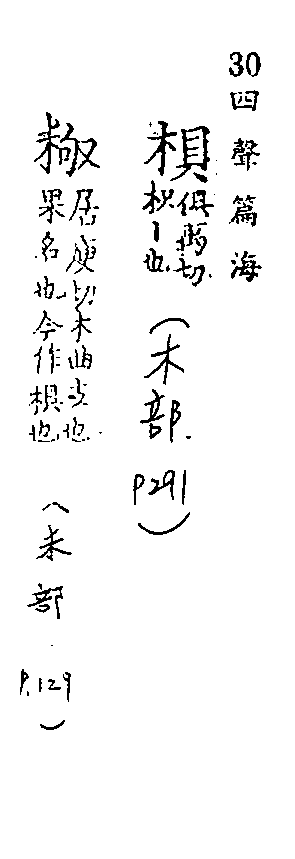 30四聲篇海
椇俱禹切枳丨也（木部．P291）
居庾切木曲支也果名也今作椇也（禾部．P.129）